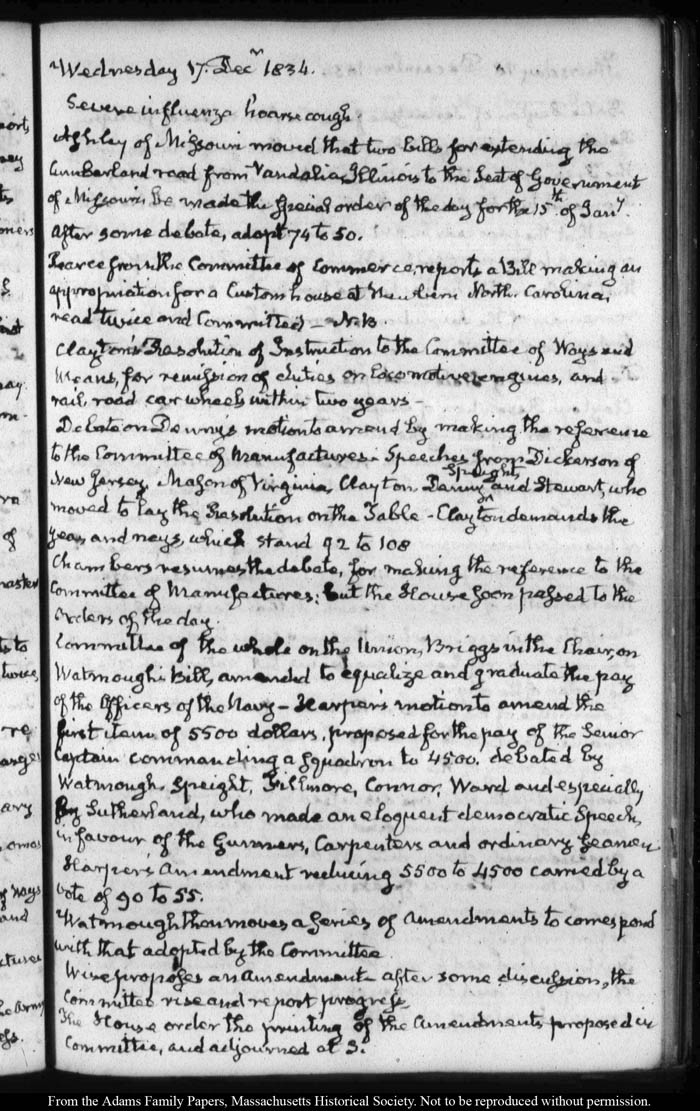 Wednesday 17. Decr 1834.
Severe influenza hoarse cough.
Ashley of Missouri moved that two bills for extending the
Cumberland road from Vandalia, Illinois to the Seat of Government
of Missouri, be made the special order of the day for the 15th of Jany.
After some debate, adopt 74 to 50.
Pearce from the Committee of Commerce, reports a Bill making an
appropriation for a Custom house at Newbern North Carolina,
read twice and Committed – N.B.
Clayton's Resolution of Instruction to the Committee of Ways and
Means, for remission of duties on locomotive engines, and
rail road car wheels within two years –
Debate on Denny's motion to amend by making the reference
to the Committee of Manufactures. Speeches from Dickerson of
New Jersey, Mason of Virginia, Clayton Denny, Speight, and Stewart, who
moved to lay the Resolution on the Table – Clayton demands the
yeas and nays, which stand 92 to 108
Chambers resumes the debate, for making the reference to the
Committee of Manufactures: but the House soon passed to the
Orders of the day.
Committee of the whole on the Union, Briggs in the Chair, on
Watmough's Bill, amended to equalize and graduate the pay
of the Officers of the Navy – Harper's motion to amend the
first item of 5500 dollars, proposed for the pay of the Senior
Captain commanding a squadron to 4500. debated by
Watmough, Speight, Fillmore, Connor, Ward and especially
by Sutherland, who made an eloquent democratic Speech,
in favour of the Gunners, Carpenters and ordinary Seamen
Harper's amendment reducing 5500 to 4500 carried by a
vote of 90 to 55.
Watmough then moves a series of amendments to correspond
with that adopted by the Committee
Wise proposes an amendment after some discussion, the
Committee rise and report progress,
The House order the printing of the amendments proposed in
Committee, and adjourned at 3.
From the Adams Family Papers, Massachusetts Historical Society. Not to be reproduced without permission.